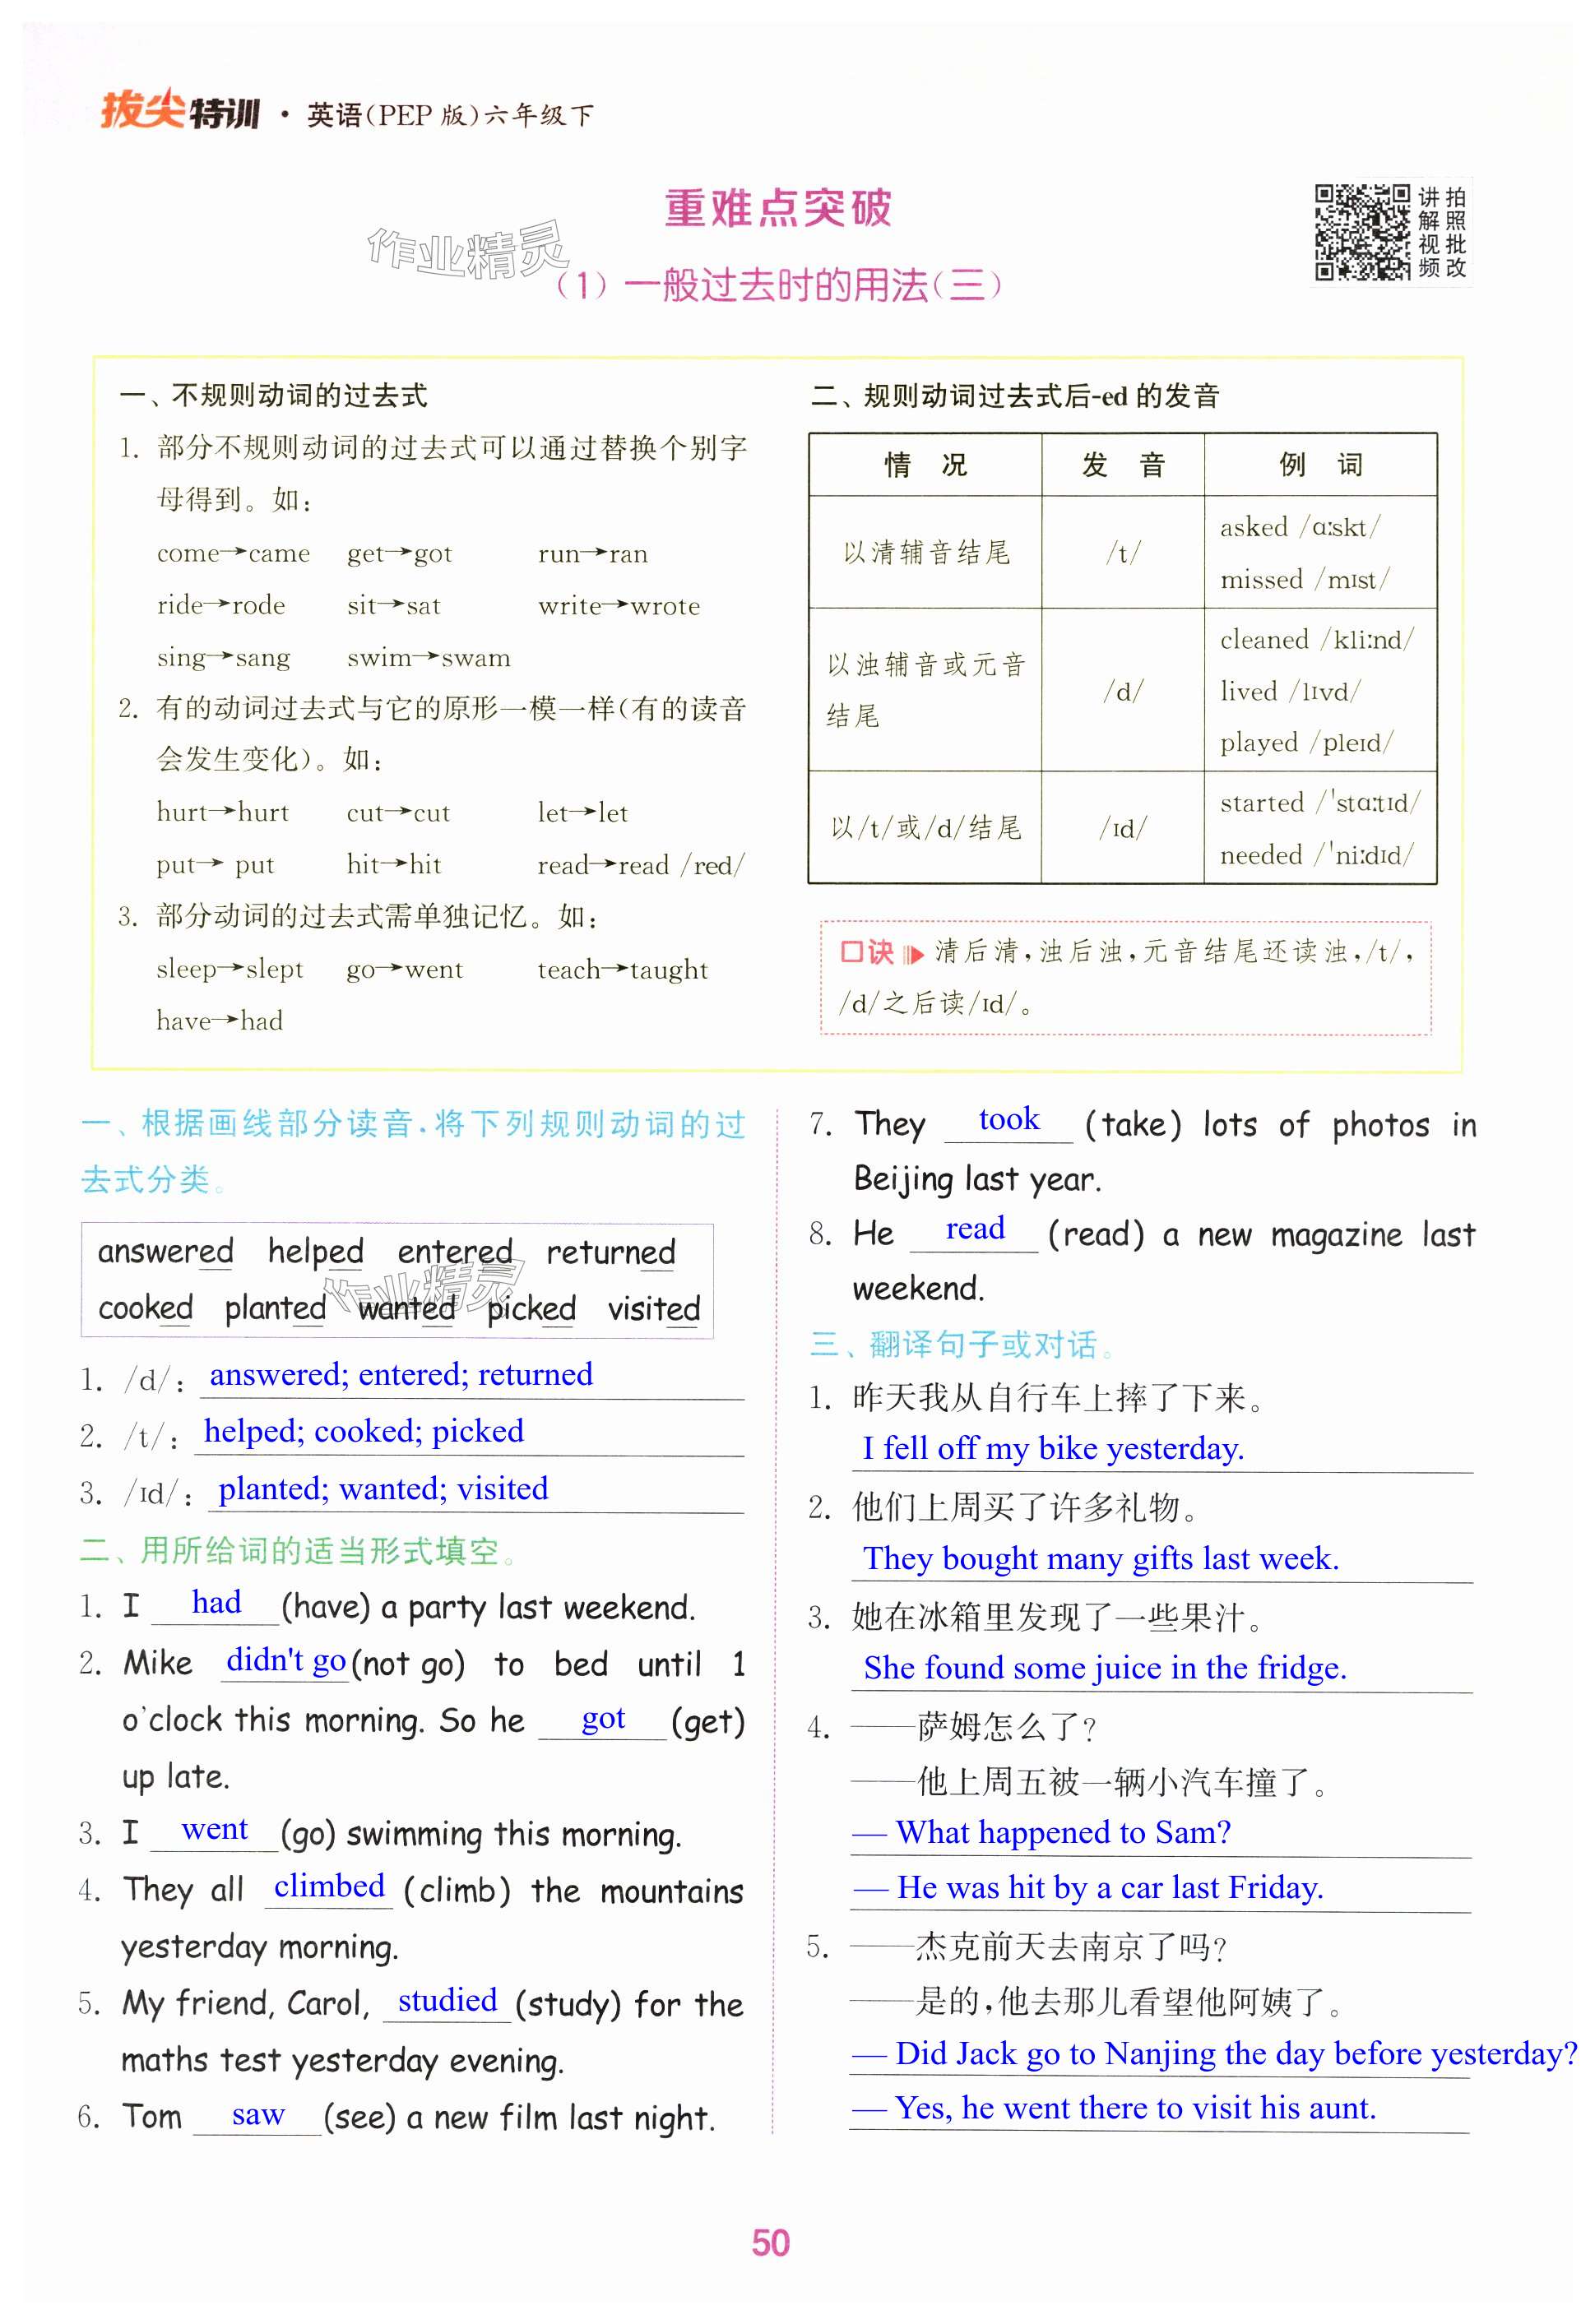 拔尖特训 · 英语(PEP 版)六年级下
重难点突破
讲解视频
拍照批改
作业精灵
(1) 一般过去时的用法(三)
一、不规则动词的过去式
1. 部分不规则动词的过去式可以通过替换个别字
母得到。如:
come→came get→got run→ran
ride→rode sit→sat write→wrote
sing→sang swim→swam
2. 有的动词过去式与它的原形一模一样(有的读音
会发生变化)。如:
hurt→hurt cut→cut let→let
put→ put hit→hit read→read /red/
3. 部分动词的过去式需单独记忆。如:
sleep→slept go→went teach→taught
have→had
二、规则动词过去式后-ed 的发音
情 况 发 音 例 词
以清辅音结尾 /t/ asked /ɑːskt/
missed /mɪst/
以浊辅音或元音
结尾 /d/ cleaned /kliːnd/
lived /lɪvd/
played /pleɪd/
以/t/或/d/结尾 /ɪd/ started /ˈstɑːtɪd/
needed /ˈniːdɪd/
口诀 清后清,浊后浊,元音结尾还读浊,/t/,
/d/之后读/ɪd/。
一、根据画线部分读音,将下列规则动词的过
去式分类。
answered helped entered returned
作业精灵
cooked planted wanted picked visited
1. /d/: answered; entered; returned
2. /t/: helped; cooked; picked
3. /ɪd/: planted; wanted; visited
二、用所给词的适当形式填空。
1. I had (have) a party last weekend.
2. Mike didn't go (not go) to bed until 1
o'clock this morning. So he got (get)
up late.
3. I went (go) swimming this morning.
4. They all climbed (climb) the mountains
yesterday morning.
5. My friend, Carol, studied (study) for the
maths test yesterday evening.
6. Tom saw (see) a new film last night.
7. They took (take) lots of photos in
Beijing last year.
8. He read (read) a new magazine last
weekend.
三、翻译句子或对话。
1. 昨天我从自行车上摔了下来。
I fell off my bike yesterday.
2. 他们上周买了许多礼物。
They bought many gifts last week.
3. 她在冰箱里发现了一些果汁。
She found some juice in the fridge.
4. ——萨姆怎么了?
——他上周五被一辆小汽车撞了。
— What happened to Sam?
— He was hit by a car last Friday.
5. ——杰克前天去南京了吗?
——是的,他去那儿看望他阿姨了。
— Did Jack go to Nanjing the day before yesterday?
— Yes, he went there to visit his aunt.
50